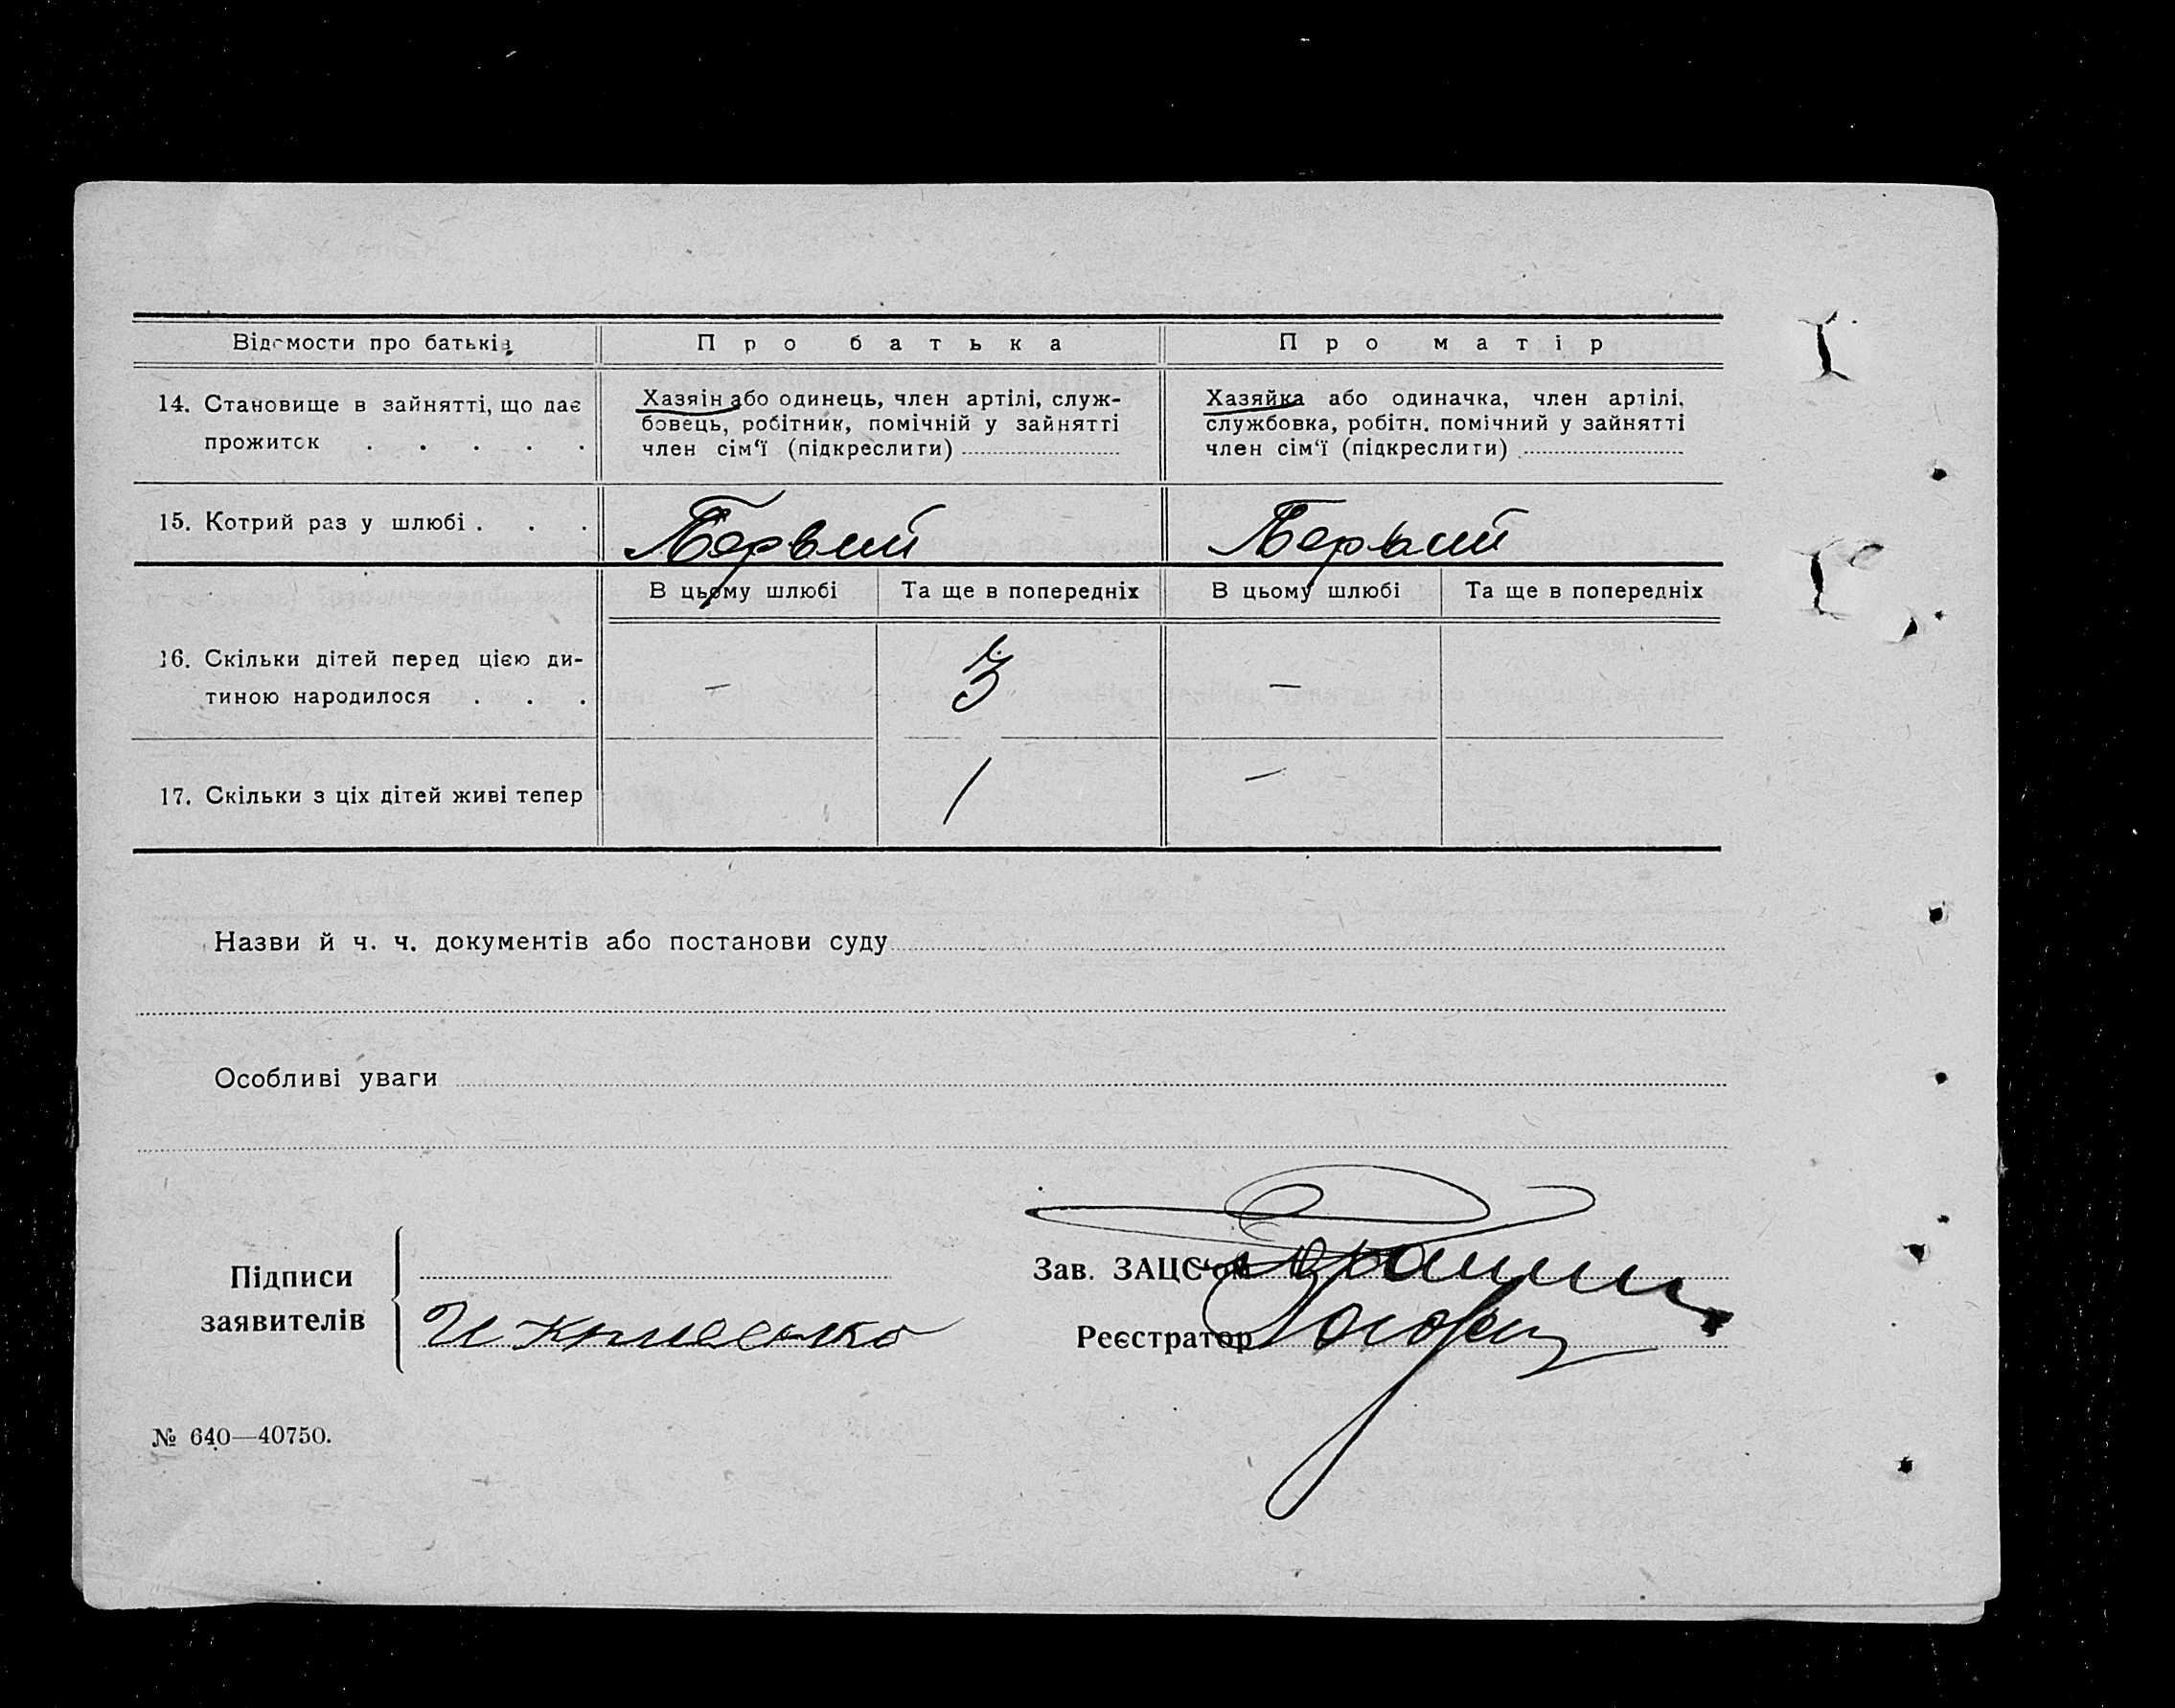 Відомости про батьків
Про батька
Про матір
14. Становище в зайнятті, що дає
прожиток . . . . .
Хазяін або одинець, член артілі, служ-
бовець, робітник, помічній у зайнятті
член сім‘ї (підкреслити)
Хазяйка або одиначка, член артілі,
службовка, робітн. помічний у зайнятті
член сім‘ї (підкреслити)
15. Котрий раз у шлюбі . . .
Первий
Первий
В цьому шлюбі
Та ще в попередніх
В цьому шлюбі
Та ще в попередніх
16. Скільки дітей перед цією ди-
тиною народилося . . .
–
3
–
17. Скільки з ціх дітей живі тепер
1
–
Назви й ч. ч. документів або постанови суду
Особливі уваги
Підписи
заявителів
И
Зав. ЗАЦС‘ом
Реєстратор
№ 640—40750.